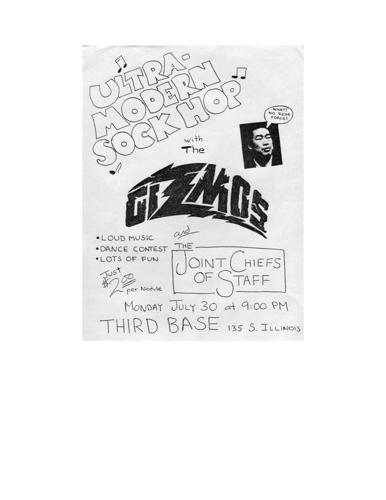 ULTRA-
MODERN
SOCK HOP
WHAT!
NO
with
The
GIZMOS
• LOUD MUSIC
• DANCE CONTEST
• LOTS OF FUN
and
THE
JOINT CHIEFS
OF STAFF
JUST
$2.00
per Nodule
MONDAY JULY 30 at 9:00 PM
THIRD BASE 135 S. ILLINOIS